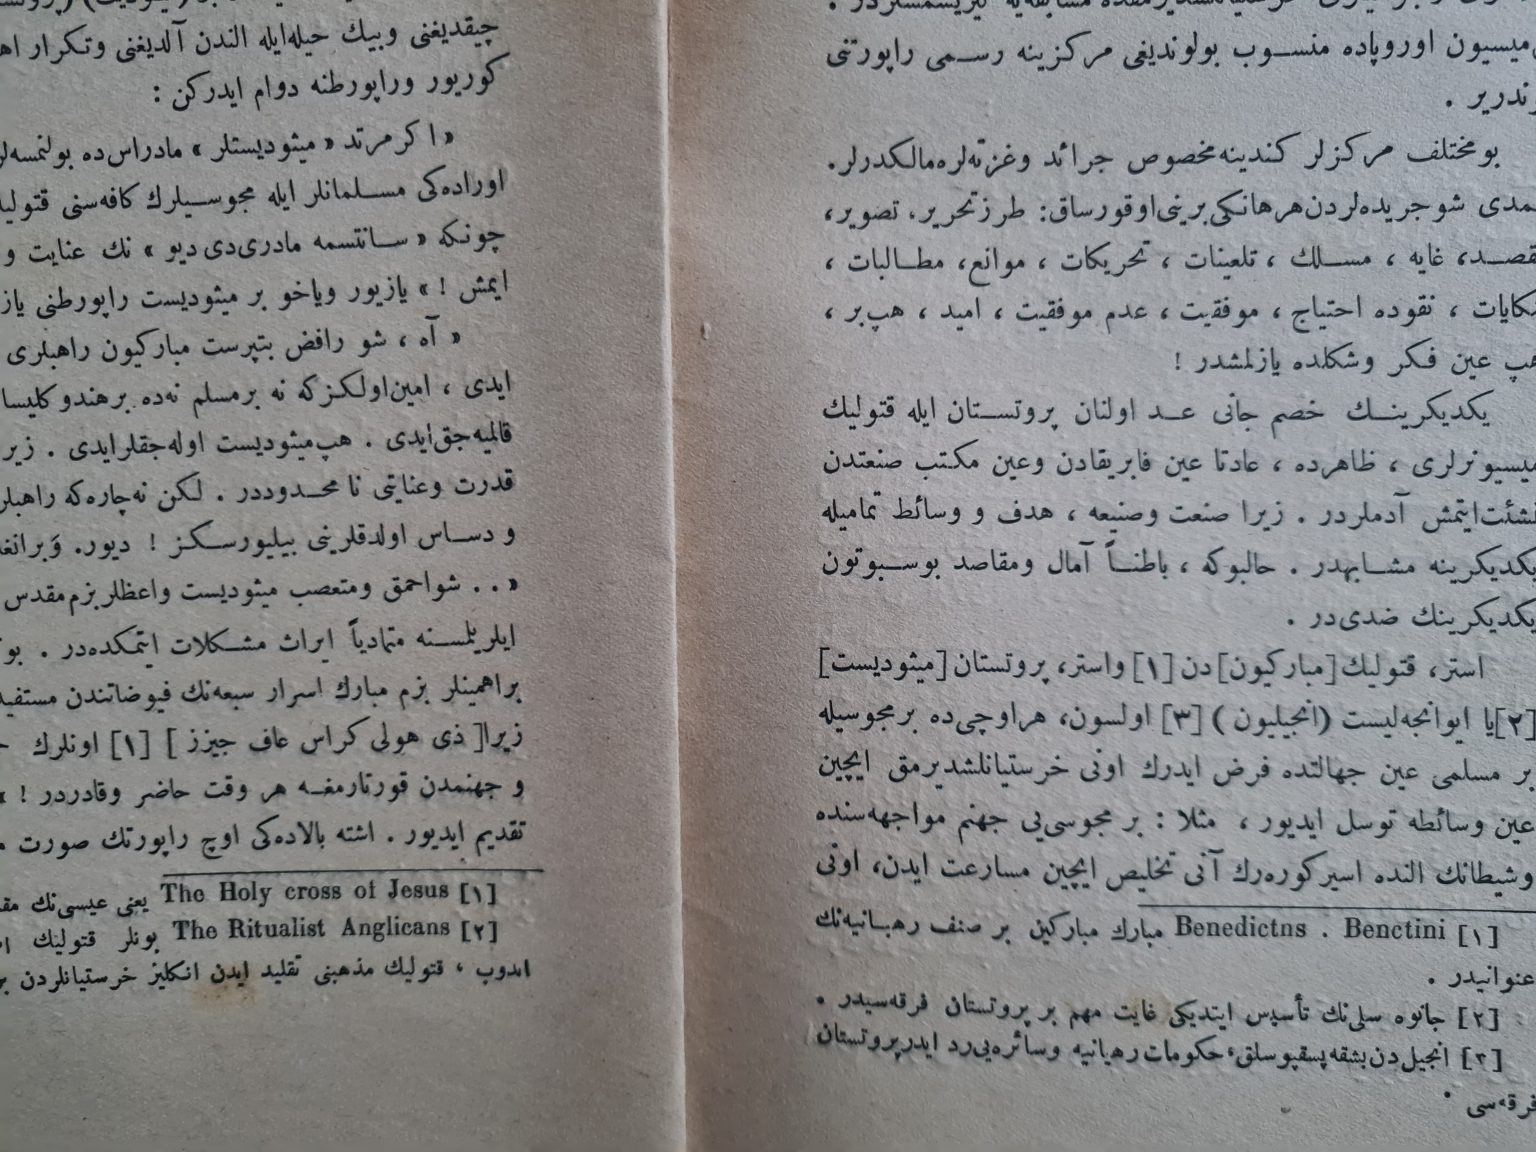 میسیون اوروپاده منسوب بولوندیغی مرکزینه رسمی راپورتنی
بو مختلف مرکزلر کندینه مخصوص جرائد وغزته‌لره مالکدرلر.
شو جریده‌لردن هرهانکی برینی اوقورساق: طرز تحریر، تصویر،
غایه ، مسلك ، تلعینات ، تحریکات ، موانع، مطالبات ،
نقوده احتیاج ، موفقیت ، عدم موفقیت ، امید ، هپ بر ،
هپ عین فکر وشکلده یازلمشدر !
یکدیکرینك خصم جانی عد اولنان پروتستان ایله قتولیك
میسیونرلری ، ظاهرده ، عادتا عین فابریقادن وعین مکتب صنعتدن
نشئت ایتمش آدملردر . زیرا صنعت وصنیعه ، هدف و وسائط تمامیله
یکدیکرینه مشابهدر . حالبوکه ، باطناً آمال ومقاصد بوسبوتون
یکدیکرینك ضدی در .
استر، قتولیك [مبارکیون] دن [۱] واستر، پروتستان [میثودیست]
[۲] یا ایوانجه‌لیست (انجیلیون) [۳] اولسون، هراوچی ده بر مجوسیله
بر مسلمی عین جهالتده فرض ایدرك اونی خرستیانلشدیرمق ایچین
عین وسائطه توسل ایدیور ، مثلا : بر مجوسی‌یی جهنم مواجهه‌سنده
وشیطانك النده اسیر کوره‌رك آنی تخلیص ایچین مسارعت ایدن، اونی
[۱] Benedictns . Benctini مبارك مبارکین بر صنف رهبانیه‌نك
عنوانیدر .
[۲] جانوه سلی‌نك تأسیس ایتدیکی غایت مهم بر پروتستان فرقه‌سیدر .
[۳] انجیل دن بشقه پسقپوسلق، حکومات رهبانیه وسائره‌یی رد ایدر پروتستان
فرقه‌سی .
چیقدیغنی وبیك حیله ایله الندن آلدیغنی وتکرار
کوریور وراپورطنه دوام ایدرکن :
« اکر مرتد « میثودیستلر » مادراس ده بولنمسه‌لر
اوراده‌کی مسلمانلر ایله مجوسیلرك کافه‌سنی
چونکه « سانتسمه مادری دی دیو » نك عنایت و
ایمش ! » یازیور ویاخو بر میثودیست راپورطنی
« آه ، شو رافض بتپرست مبارکیون راهبلری
ایدی ، امین اولکزکه نه بر مسلم نه‌ده بر هندو
قالمیه‌جق ایدی . هپ میثودیست اوله‌جقلر ایدی .
قدرت وعنایتی نا محدوددر . لکن نه چاره‌که
و دساس اولدقلرینی بیلیورسکز ! دیور.
« . . شو احمق ومتعصب میثودیست واعظلر بزم مقدس
ایلریلمسنه متمادیاً ایراث مشکلات ایتمکده‌در .
براهمینلر بزم مبارك اسرار سبعه‌نك فیوضاتندن
زیرا [ ذی هولی کراس عاف جیزز ] [۱] اونلرك
و جهنمدن قورتارمغه هر وقت حاضر وقادردر ! »
تقدیم ایدیور . اشته بالاده‌کی اوچ راپورتك صورت
[۱] The Holy cross of Jesus یعنی عیسی‌نك
[۲] The Ritualist Anglicans بونلر قتولیك
ایدوب ، قتولیك مذهبنی تقلید ایدن انکلیز خرستیانلردن